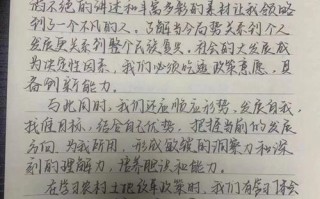 滔不绝的讲述和丰富多彩的素材让我领略
到了一个不凡的人。了解当今局势关系到个人
发展更关系到整个民族复兴，社会的大发展成
为决定性因素，我们必须吃透政策意愿，具
备创新能力。
与此同时，我们还应顺应形势，发展自我，
找准目标，结合自己优势，把握当前的发展
方向，为我所用，形成敏锐的洞察力和深
刻的理解力，培养胆识和能力。
在学习农村土地改革政策时，我们有学习了会